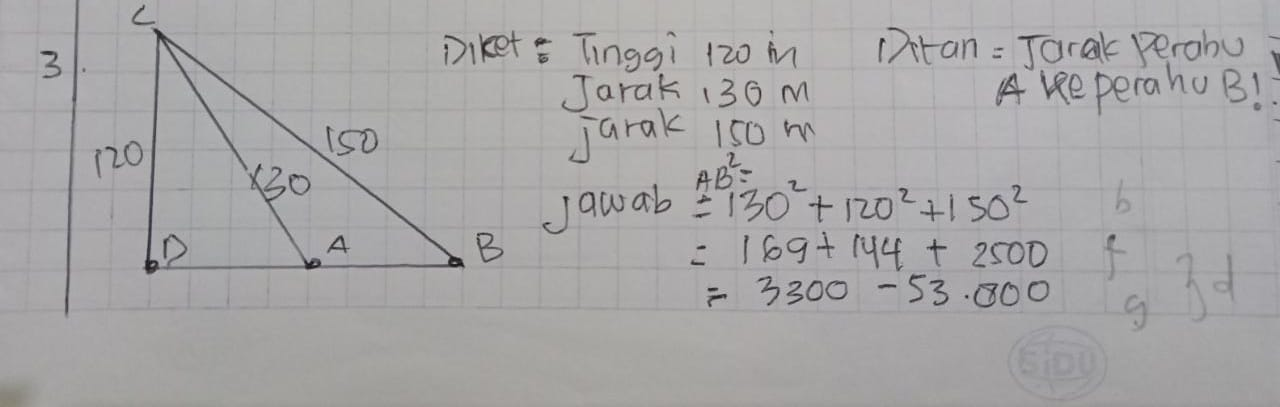 3.
C
120
150
130
D
A
B
Diket = Tinggi 120 m
Jarak 130 m
jarak 150 m
Ditan = Jarak Perahu
A ke perahu B!
AB²=
jawab = 130² + 120² + 150²
= 169 + 144 + 2500
= 3300 - 53.000
b
f
g
3d
SIDU